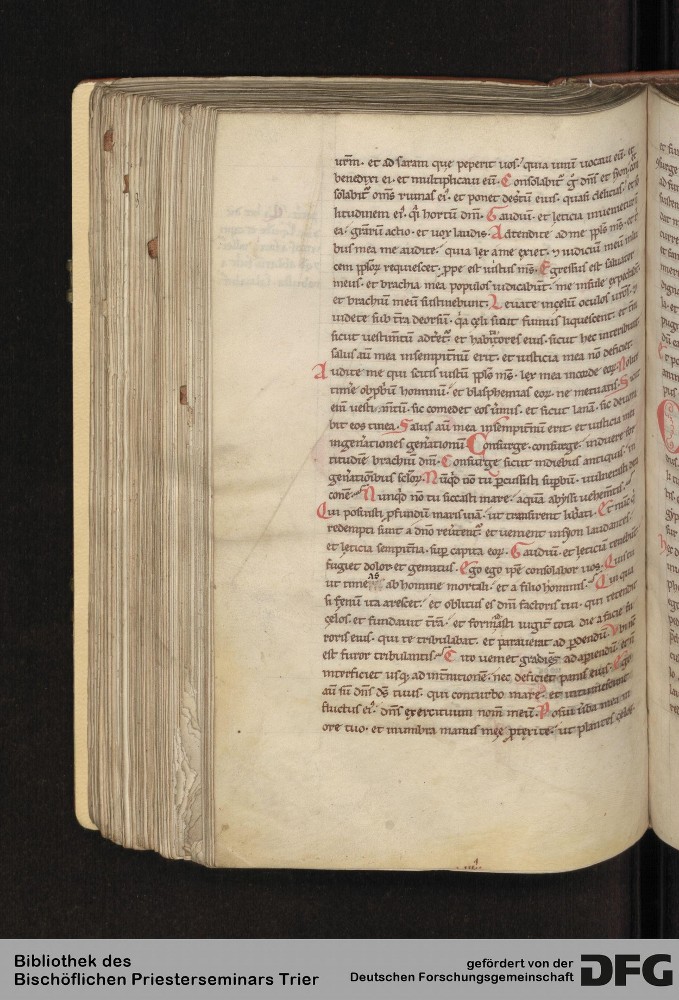 urm̄. et ad saram que peperit uos. quia unū uocaui eū. et
benedixi ei. et multiplicaui eū. Consolabit᷑ g̊ dn̄s et syon.
solabit᷑ om̄s ruinas ei᷒. et ponet desertū eius. quasi delicias. et so
litudinem ei᷒. q̈i hortū dn̄i. Gaudiū. et leticia inuenietur
ea. grārū actio. et uox laudis. Adtendite ad me ppl̄s m̄s. et t
bus mea me audite. quia lex a me exiet. et iudiciū meū
cem pplōꝝ requiescet. ꝓpe est iustus m̄s. Egressus est saluator
meus. et brachia mea populos iudicabūt. me insule expectabūt
et brachiū meū sustinebunt. Leuate in celum oculos ur̄os. et
uidete sub tr̄a deorsū. q̄a celi sicut fumus liquescent. et tr̄a
sicut uestimtū adteret᷑. et habitatores eius. sicut hec interibunt
salus aū mea insempitnū erit. et iusticia mea nō deficiet.
Audite me qui scitis iustū ppl̄s m̄s. lex mea incorde eoꝝ. Nolite
timē obprbiū hominū. et blasphemias eoꝝ ne metuatis. Sicut
eiī uestimtū. sic comedet eos uermis. et sicut lanā. sic deuora
bit eos tinea. Salus aū mea insempitnū erit. et iusticia mea
ingenerationes generationū. Consurge. consurge. induere for
titudinē brachiū dn̄i. Consurge sicut indiebus antiquis. in
generationibus scl̄oꝝ. Nūqd nō tu ꝑcussisti supbū. uulnerasti dra
conē. Nunqd nō tu siccasti mare. aquā abyssi uehemtis.
Qui posuisti ꝓfundū maris uiā. ut transirent libati. Et nunc q
redempti sunt a dn̄o reuertent᷑. et uenient insyon laudantes.
et leticia sempitna. sup capita eoꝝ. Gaudiū. et leticiā tenebūt.
fugiet dolor et gemitus. Ego ego ipē consolabor uos. Quis tu
ut timeas ab homine mortali. et a filio hominis. Qui qua
si fenū ita arescet. et oblitus es dn̄i factoris tui. qui tetendit
celos. et fundauit tr̄ā. et formidasti iugit᷑ tota die a facie fu
roris eius. qui te tribulabat. et parauerat ad ꝑdendū. Vbi nūc
est furor tribulantis. Cito ueniet gradiens ad aperiendū. et n̄
interficiet usq; ad internitionē. nec deficiet panis eius. Ego
aū sū dn̄s ds̄ tuus. qui conturbo mare. et intumescunt
fluctus ei᷒. dn̄s exercituum nom̄ meū. Posui uerba mea in
ore tuo. et inumbra manus mee ꝓtexi te. ut plantes celos.
Bibliothek des
Bischöflichen Priesterseminars Trier
gefördert von der
Deutschen Forschungsgemeinschaft
DFG